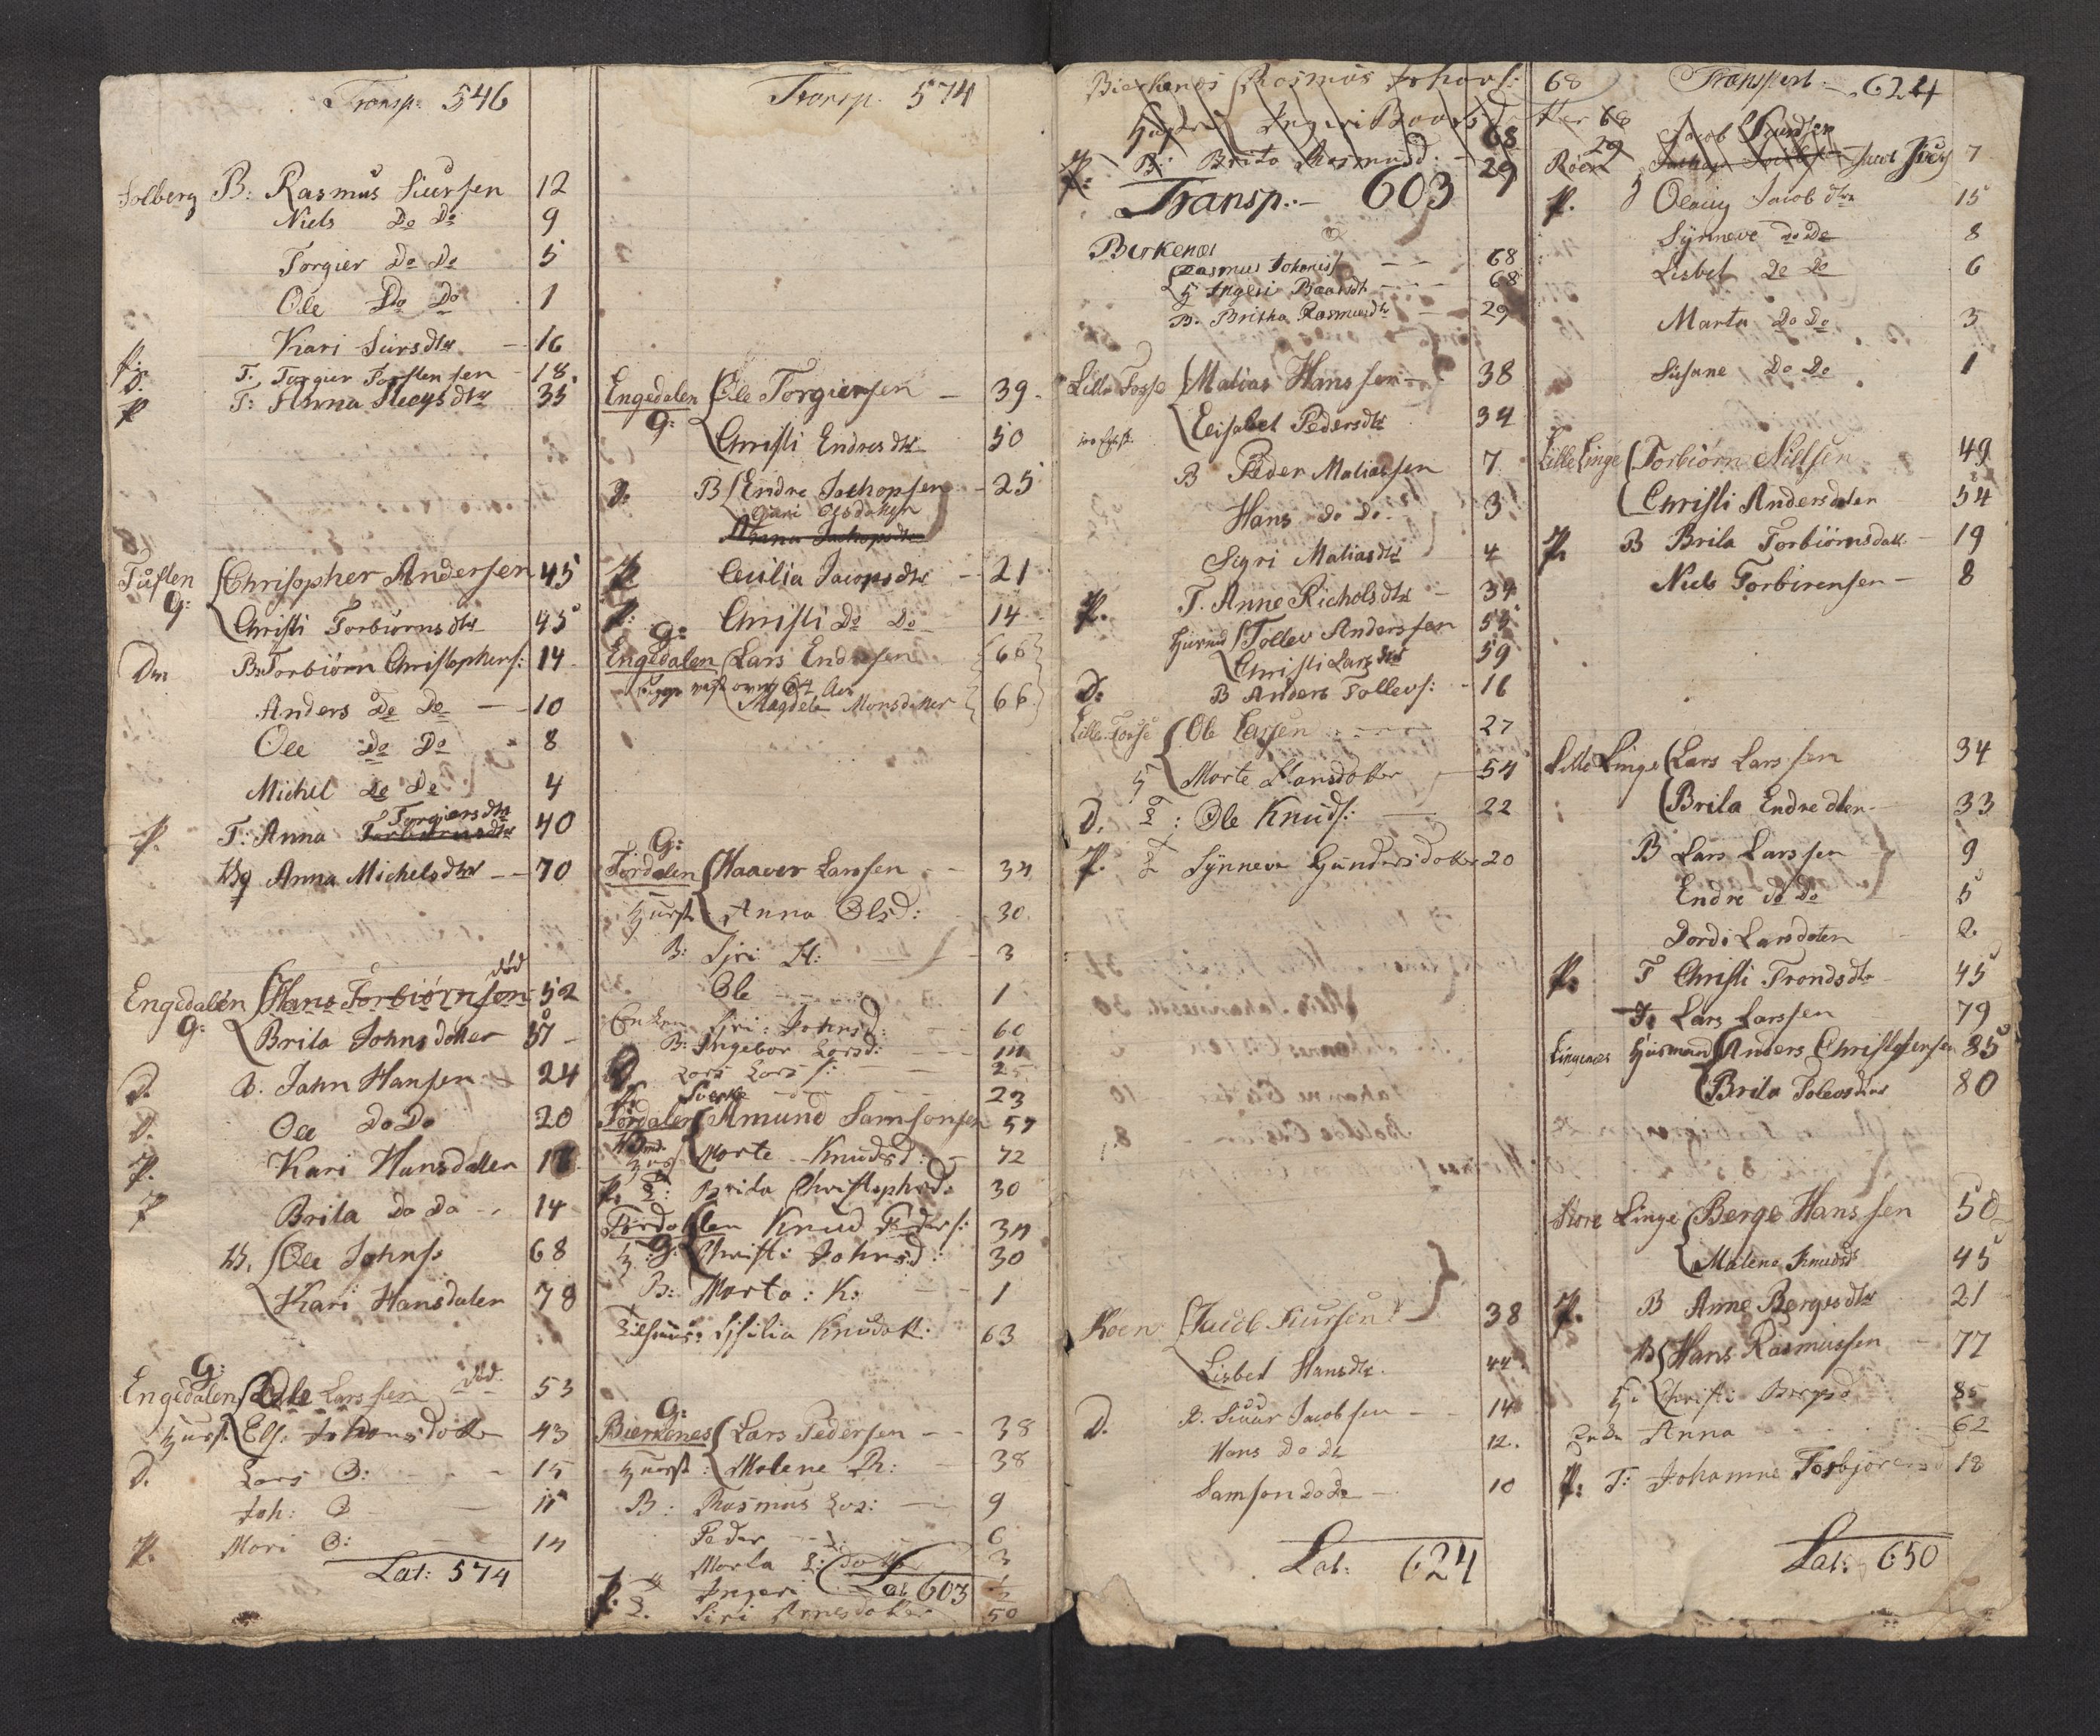 Transp: 546
Solberg B: Rasmus Siursen 12
Niels Do Do 9
Torgier Do Do 5
Ole Do Do 1
Kari Siursdtr 16
T. Torgier Torstensen 18.
p T: Anna 35
Tuften Christopher Andersen 45
g: Christi Torbiørnsdtr 45
Dr. B. Torbiørn Christophers: 14
Anders Do Do 10
Ole Do Do 8
Michel Do Do 4
Torgiersdtr
p. T: Anna Torbiørnsdtr 40
Anna Michelsdtr 70
død
Engedalen Hans Torbiørnsen 52
g: Brita Johnsdatter 57
D. B. John Hansen 24
D. Ole Do Do 20
p. Kari Hansdatter 17
p Brita Do Do 14
Ole Johns: 68
Kari Hansdater 78
G:
Engedalen Ole Larssen død 53
Hust Els: Johansdotter 43
D. Lars O: 15
Joh: O 11
p. Mari O: 14
Lat: 574
Transp. 574
Engedalen Ole Torgiersen 39
g: Christi Endresdtr 50
D. B Endre Jachopsen 25
Jachopsdtr
p Cicilia Jacopsdtr 21
p: Christi Do Do 14
g:
Engedalen Lars Endresen 66
Magdele Monsdatter 66
G:
Tordalen Haaver Larssen 34
Hust Anna Olsd: 30
B: Siri H: 3
Ole 1
Enken Siri: Johnsd: 60
B: Ingebor Larsd:
D Lars Lars s: 25
p. 23
Tordalen Amund Samsonsen 57
Marte Knudsd: 72
p. T: Brita Christophersd: 30
Tordahlen Knud Peders: 34
H: g: Christi Johnsd: 30
B: Marta: K: 1
Sisilia Knudsdt: 63
G:
Bierkenes Lars Pedersen 38
Hust: Malene R: 38
B: Rasmus Las: 9
Peder 6
Marta L: dotter 3
Ingeri
Lat 603
p: T. Siri Arnesdotter 50
Bierkenes Rasmus Johans: 68
Ingeri Baarsd 68
p: B: Brita Rasmusd: 29
Transp: 603
Birkenes
Rasmus Johanes 68
H Ingeri Baarsdt 68
B. Britha Rasmusdtr 29
Lille Fosse Matias Hanssen 38
Elisabet Pedersdtr 34
B Peder Matiassen 7
Hans Do Do 3
Sigri Matiasdtr 4
p. T. Anne Richolsdtr 34
Husmd Tollev Anderssen 55
Christi Larsdtr 59
D: B Anders Tollevs: 16
Lille Fosse Ole Larsen 27
H Marte Hansdotter 54
D. T: Ole Knuds: 22
p. T Synneve Gundersdotter 20
Roen Jacob Siursen 38
Lisbet Hansdtr 44
D. B. Siuur Jacobsen 14
Hans do do 12.
Samson do do 10
Lat: 624
Transport: 624
Jacob Knudsen
Roen 7
p. Jacobdtr 15
Synneve do Do 8
Lisbet Do Do 6
Marta Do Do 3
Susane Do Do 1
Lille Linge Torbiørn Nielsen 49
Christi Andersdater 54
p. B Brita Torbiørnsdatt 19
Niels Torbirensen 8
Lille Linge Lars Larssen 34
Brita Endredter 33
B Lars Larssen 9
Endre do Do 5
Dordi Larsdaten 2
p. T Christi Trondsdtr 45
T. Lars Larssen 79
Lingenæs Husmand Anders Christophersen 85
Brita 80
Store Linge Børge Hanssen 50
Malene Knudsdt 45
p. B Anne Bergesdtr 21
Hans Rasmussen 77
H: Christi 85
Anna 62
p. T: Johanne Torbjørensd 18
Lat: 650